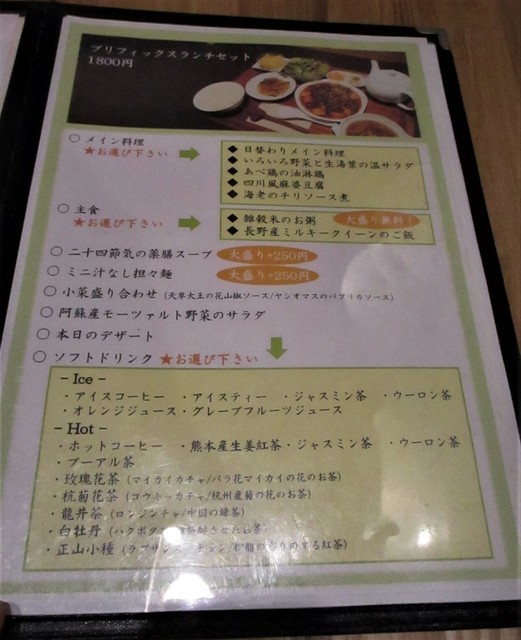 プリフィックスランチセット
1800円
○ メイン料理
★お選び下さい
◆ 日替わりメイン料理
◆ いろいろ野菜と生湯葉の温サラダ
◆ あべ鶏の油淋鶏
◆ 四川風麻婆豆腐
◆ 海老のチリソース煮
○ 主食
★お選び下さい
◆ 雑穀米のお粥 大盛り無料!
◆ 長野産ミルキークイーンのご飯
○ 二十四節気の薬膳スープ 大盛り+250円
○ ミニ汁なし担々麺 大盛り+250円
○ 小菜盛り合わせ (天草大王の花山椒ソース/ヤシオマスのパプリカソース)
○ 阿蘇産モーツァルト野菜のサラダ
○ 本日のデザート
○ ソフトドリンク ★お選び下さい
- Ice -
・アイスコーヒー ・アイスティー ・ジャスミン茶 ・ウーロン茶
・オレンジジュース・グレープフルーツジュース
- Hot -
・ホットコーヒー ・熊本産生姜紅茶・ジャスミン茶 ・ウーロン茶
・プーアル茶
・玫瑰花茶 (マイカイカチャ/バラ花マイカイの花のお茶)
・杭菊花茶 (コウキッカチャ/杭州産菊の花のお茶)
・龍井茶 (ロンジンチャ/中国の緑茶)
・白牡丹 (ハクボタン
・正山小種 (ラプサンスーチョン/ 香りのする紅茶)